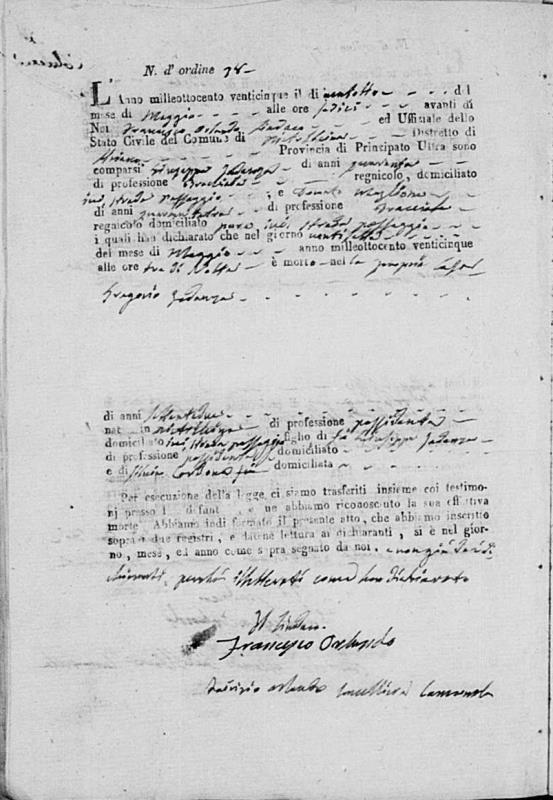 N. d'ordine 78
L'Anno milleottocento venticinque il di ventotto del
mese di Maggio alle ore sedici avanti di
Noi Francesco Orlando Sindaco ed Uffiziale dello
Stato Civile del Comune di Distretto di
Ariano Provincia di Principato Ultra sono
comparsi Giuseppe di anni quaranta
di professione Bracciale regnicolo, domiciliato
ivi, strada passaggio, e Donato
di anni di professione Bracciale
regnicolo domiciliato pure ivi, strada passaggio
i quali han dichiarato che nel giorno ventisette
del mese di Maggio anno milleottocento venticinque
alle ore tre di Notte è morto nella propria Casa
Gregorio
di anni settantadue
nat in di professione possidente
domiciliato ivi strada passaggio figlio di fu Giuseppe
di professione possidente domiciliato
e di domiciliata
Per esecuzione della legge, ci siamo trasferiti insieme coi testimo-
nj presso l defunt e ne abbiamo riconosciuto la sua effettiva
morte. Abbiamo indi formato il presente atto, che abbiamo inscritto
sopra i due registri, e datene lettura ai dichiaranti, si è nel gior-
no, mese, ed anno come sopra segnato da noi, e non già da' di-
chiaranti, perché illetterati come han dichiarato
Il Sindaco
Francesco Orlando
Orlando